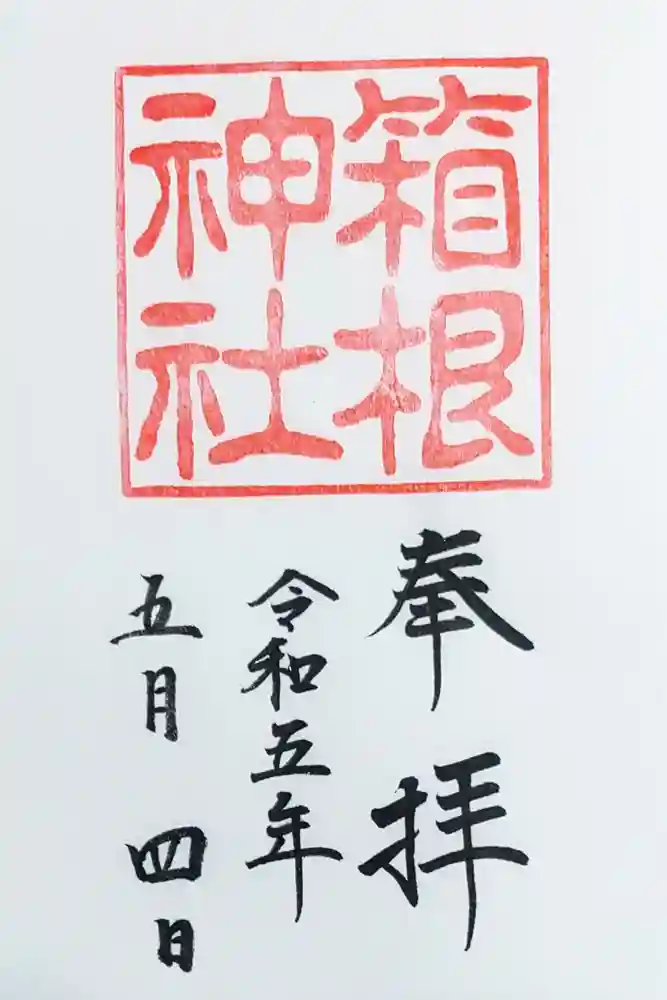 箱根
神社
奉拝
令和五年
五月四日